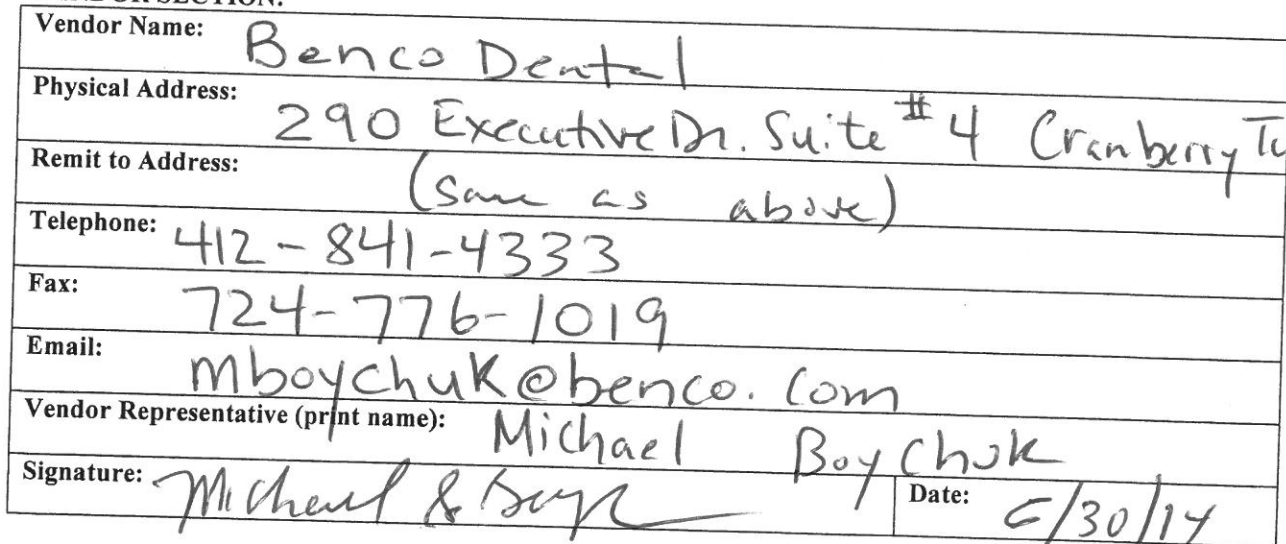 Vendor Name: Benco Dental
Physical Address: 290 Executive Dr. Suite #4 Cranberry
Remit to Address: (Same as above)
Telephone: 412-841-4333
Fax: 724-776-1019
Email: mboychuk@benco.com
Vendor Representative (print name): Michael Boychuk
Signature: Michael Date: 6/30/14